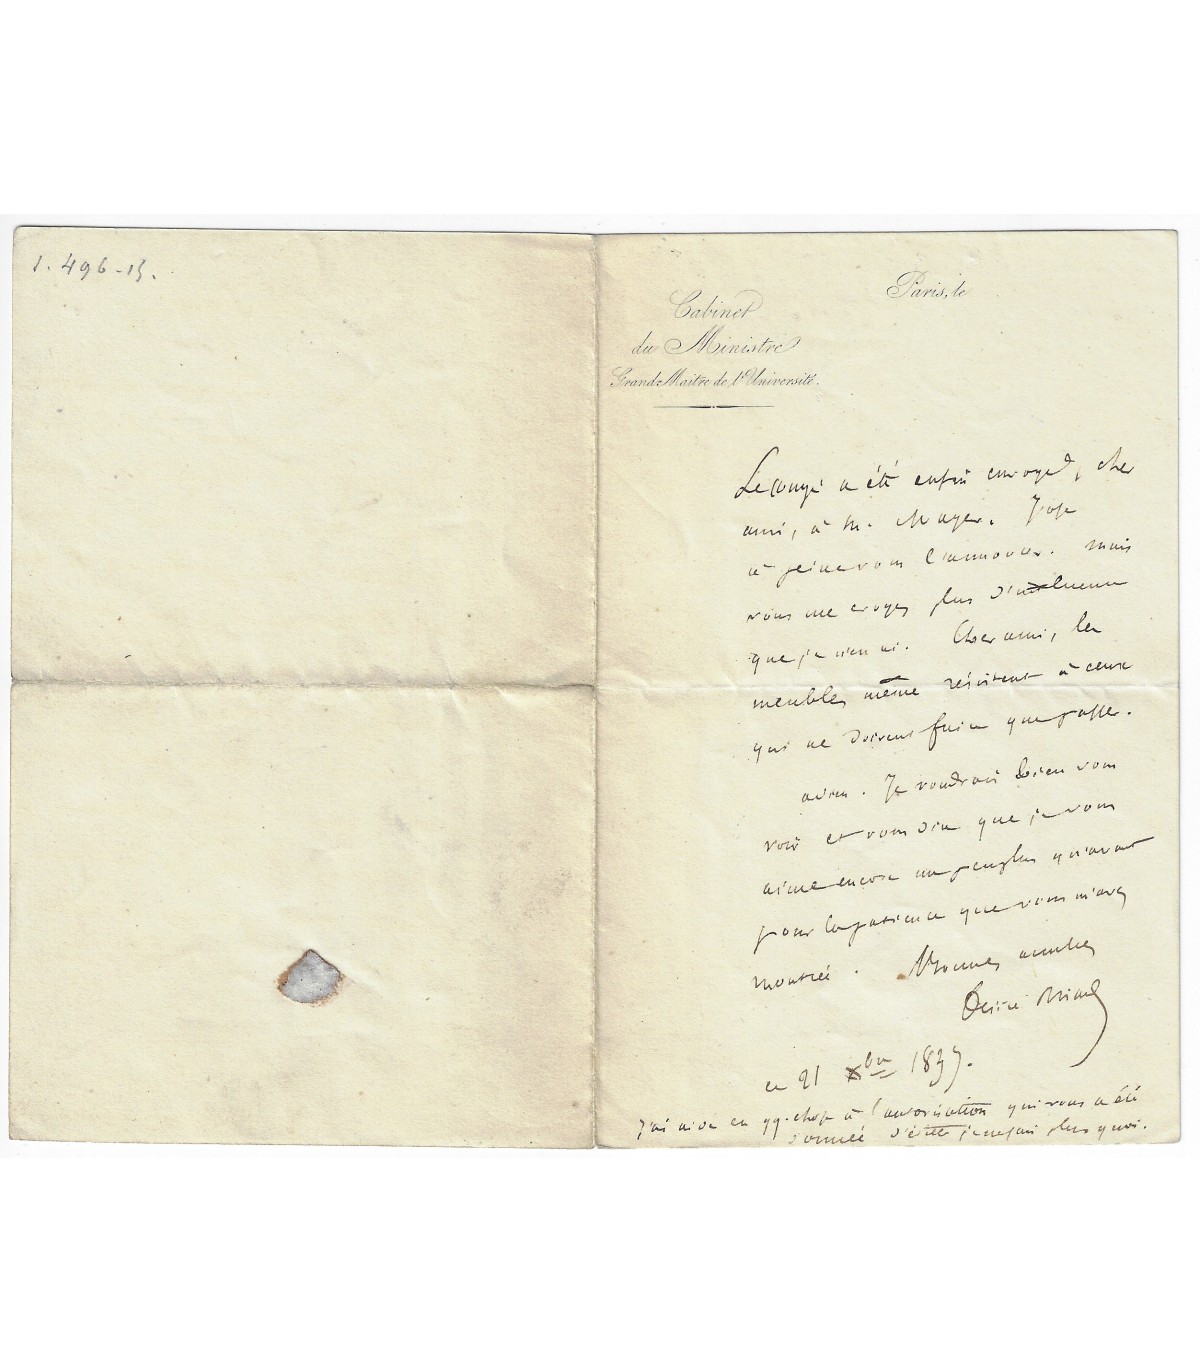 1. 496-15.
Paris, le
Cabinet
du Ministre
Grand-Maitre de l'Université.
Le congé a été enfin envoyé, cher
ami, à M. Mayer. J'ose
à peine vous l'annoncer. Mais
vous me croyez plus d'influence
que je n'en ai. Cher ami, les
meubles même résistent à ceux
qui ne doivent faire que passer.
adieu. Je voudrais bien vous
voir et vous dire que je vous
aime encore un peu plus qu'avant
pour la patience que vous m'avez
montrée. Bonnes amitiés
Désiré Nisard
ce 21 Xbre 1837.
J'ai aidé en qq. chose à l'autorisation qui vous a été
donnée d'éditer je ne sais plus quoi.